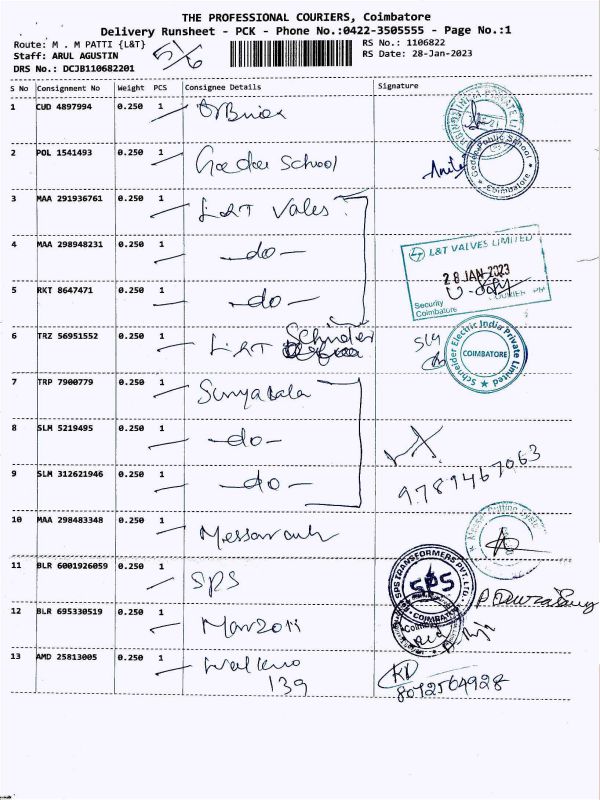 THE PROFESSIONAL COURIERS, Coimbatore
Delivery Runsheet - PCK - Phone No.:0422-3505555 - Page No.:1
Route: M . M PATTI {L&T}
Staff: ARUL AGUSTIN
DRS No.: DCJB110682201
5/6
RS No.: 1106822
RS Date: 28-Jan-2023
S No Consignment No Weight PCS Consignee Details Signature
1 CUD 4897994 0.250 1
2 POL 1541493 0.250 1 Geedee School
Gedee Public School
Coimbatore
3 MAA 291936761 0.250 1 L&T Vales
4 MAA 298948231 0.250 1 -do-
L&T VALVES LIMITED
28 JAN 2023
Security
Coimbatore
5 RKT 8647471 0.250 1 -do-
6 TRZ 56951552 0.250 1 L&T Schnider
Schneider Electric India Private Limited
COIMBATORE
7 TRP 7900779 0.250 1 Suryabala
8 SLM 5219495 0.250 1 -do-
9 SLM 312621946 0.250 1 -do-
9789467063
10 MAA 298483348 0.250 1
11 BLR 6001926059 0.250 1 SPS
SPS TRANSFORMERS PVT. LTD.
SPS
COIMBATORE
12 BLR 695330519 0.250 1
13 AMD 25813005 0.250 1
139
8072564928